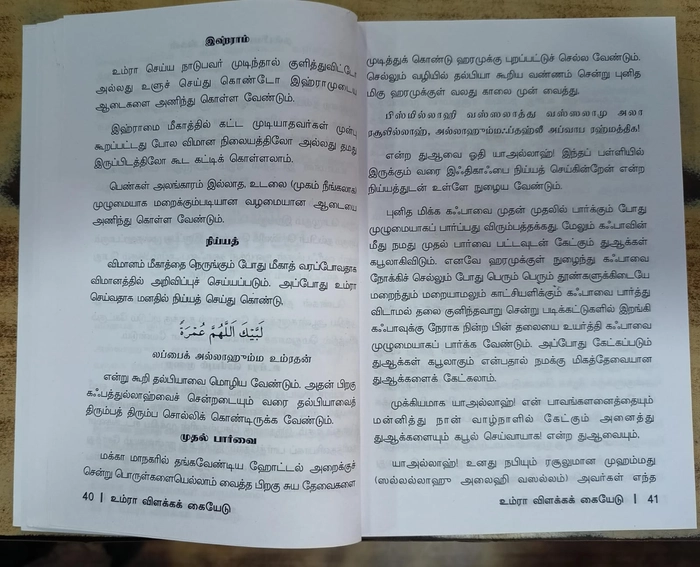 இஹ்ராம்
உம்ரா செய்ய நாடுபவர் முடிந்தால் குளித்துவிட்டோ
அல்லது உளுச் செய்து கொண்டோ இஹ்ராமுடைய
ஆடைகளை அணிந்து கொள்ள வேண்டும்.
இஹ்ராமை மீகாத்தில் கட்ட முடியாதவர்கள் முன்பு
கூறப்பட்டது போல விமான நிலையத்திலோ அல்லது தமது
இருப்பிடத்திலோ கூட கட்டிக் கொள்ளலாம்.
பெண்கள் அலங்காரம் இல்லாத, உடலை (முகம் நீங்கலாக)
முழுமையாக மறைக்கும்படியான வழமையான ஆடையை
அணிந்து கொள்ள வேண்டும்.
நிய்யத்
விமானம் மீகாத்தை நெருங்கும் போது மீகாத் வரப்போவதாக
விமானத்தில் அறிவிப்புச் செய்யப்படும். அப்போது உம்ரா
செய்வதாக மனதில் நிய்யத் செய்து கொண்டு,
لَبَّيْكَ اَللّٰهُمَّ عُمْرَةً
லப்பைக் அல்லாஹும்ம உம்ரதன்
என்று கூறி தல்பியாவை மொழிய வேண்டும். அதன் பிறகு
கஃபத்துல்லாஹ்வைச் சென்றடையும் வரை தல்பியாவைத்
திரும்பத் திரும்ப சொல்லிக் கொண்டிருக்க வேண்டும்.
முதல் பார்வை
மக்கா மாநகரில் தங்கவேண்டிய ஹோட்டல் அறைக்குச்
சென்று பொருள்களையெல்லாம் வைத்த பிறகு சுய தேவைகளை
40 | உம்ரா விளக்கக் கையேடு
முடித்துக் கொண்டு ஹரமுக்கு புறப்பட்டுச் செல்ல வேண்டும்.
செல்லும் வழியில் தல்பியா கூறிய வண்ணம் சென்று புனித
மிகு ஹரமுக்குள் வலது காலை முன் வைத்து.
பிஸ்மில்லாஹி வஸ்ஸலாத்து வஸ்ஸலாமு அலா
ரசூலில்லாஹ், அல்லாஹும்மஃப்தஹ்லீ அப்வாப ரஹ்மத்திக!
என்ற துஆவை ஓதி யாஅல்லாஹ்! இந்தப் பள்ளியில்
இருக்கும் வரை இஃதிகாஃபை நிய்யத் செய்கின்றேன் என்ற
நிய்யத்துடன் உள்ளே நுழைய வேண்டும்.
புனித மிக்க கஃபாவை முதன் முதலில் பார்க்கும் போது
முழுமையாகப் பார்ப்பது விரும்பத்தக்கது. மேலும் கஃபாவின்
மீது நமது முதல் பார்வை பட்டவுடன் கேட்கும் துஆக்கள்
கபூலாகிவிடும். எனவே ஹரமுக்குள் நுழைந்து கஃபாவை
நோக்கிச் செல்லும் போது பெரும் பெரும் தூண்களுக்கிடையே
மறைந்தும் மறையாமலும் காட்சியளிக்கும் கஃபாவை பார்த்து
விடாமல் தலை குனிந்தவாறு சென்று படிக்கட்டுகளில் இறங்கி
கஃபாவுக்கு நேராக நின்ற பின் தலையை உயர்த்தி கஃபாவை
முழுமையாகப் பார்க்க வேண்டும். அப்போது கேட்கப்படும்
துஆக்கள் கபூலாகும் என்பதால் நமக்கு மிகத்தேவையான
துஆக்களைக் கேட்கலாம்.
முக்கியமாக யாஅல்லாஹ்! என் பாவங்களனைத்தையும்
மன்னித்து நான் வாழ்நாளில் கேட்கும் அனைத்து
துஆக்களையும் கபூல் செய்வாயாக! என்ற துஆவையும்.
யாஅல்லாஹ்! உனது நபியும் ரசூலுமான முஹம்மது
(ஸல்லல்லாஹு அலைஹி வஸல்லம்) அவர்கள் எந்த
உம்ரா விளக்கக் கையேடு | 41